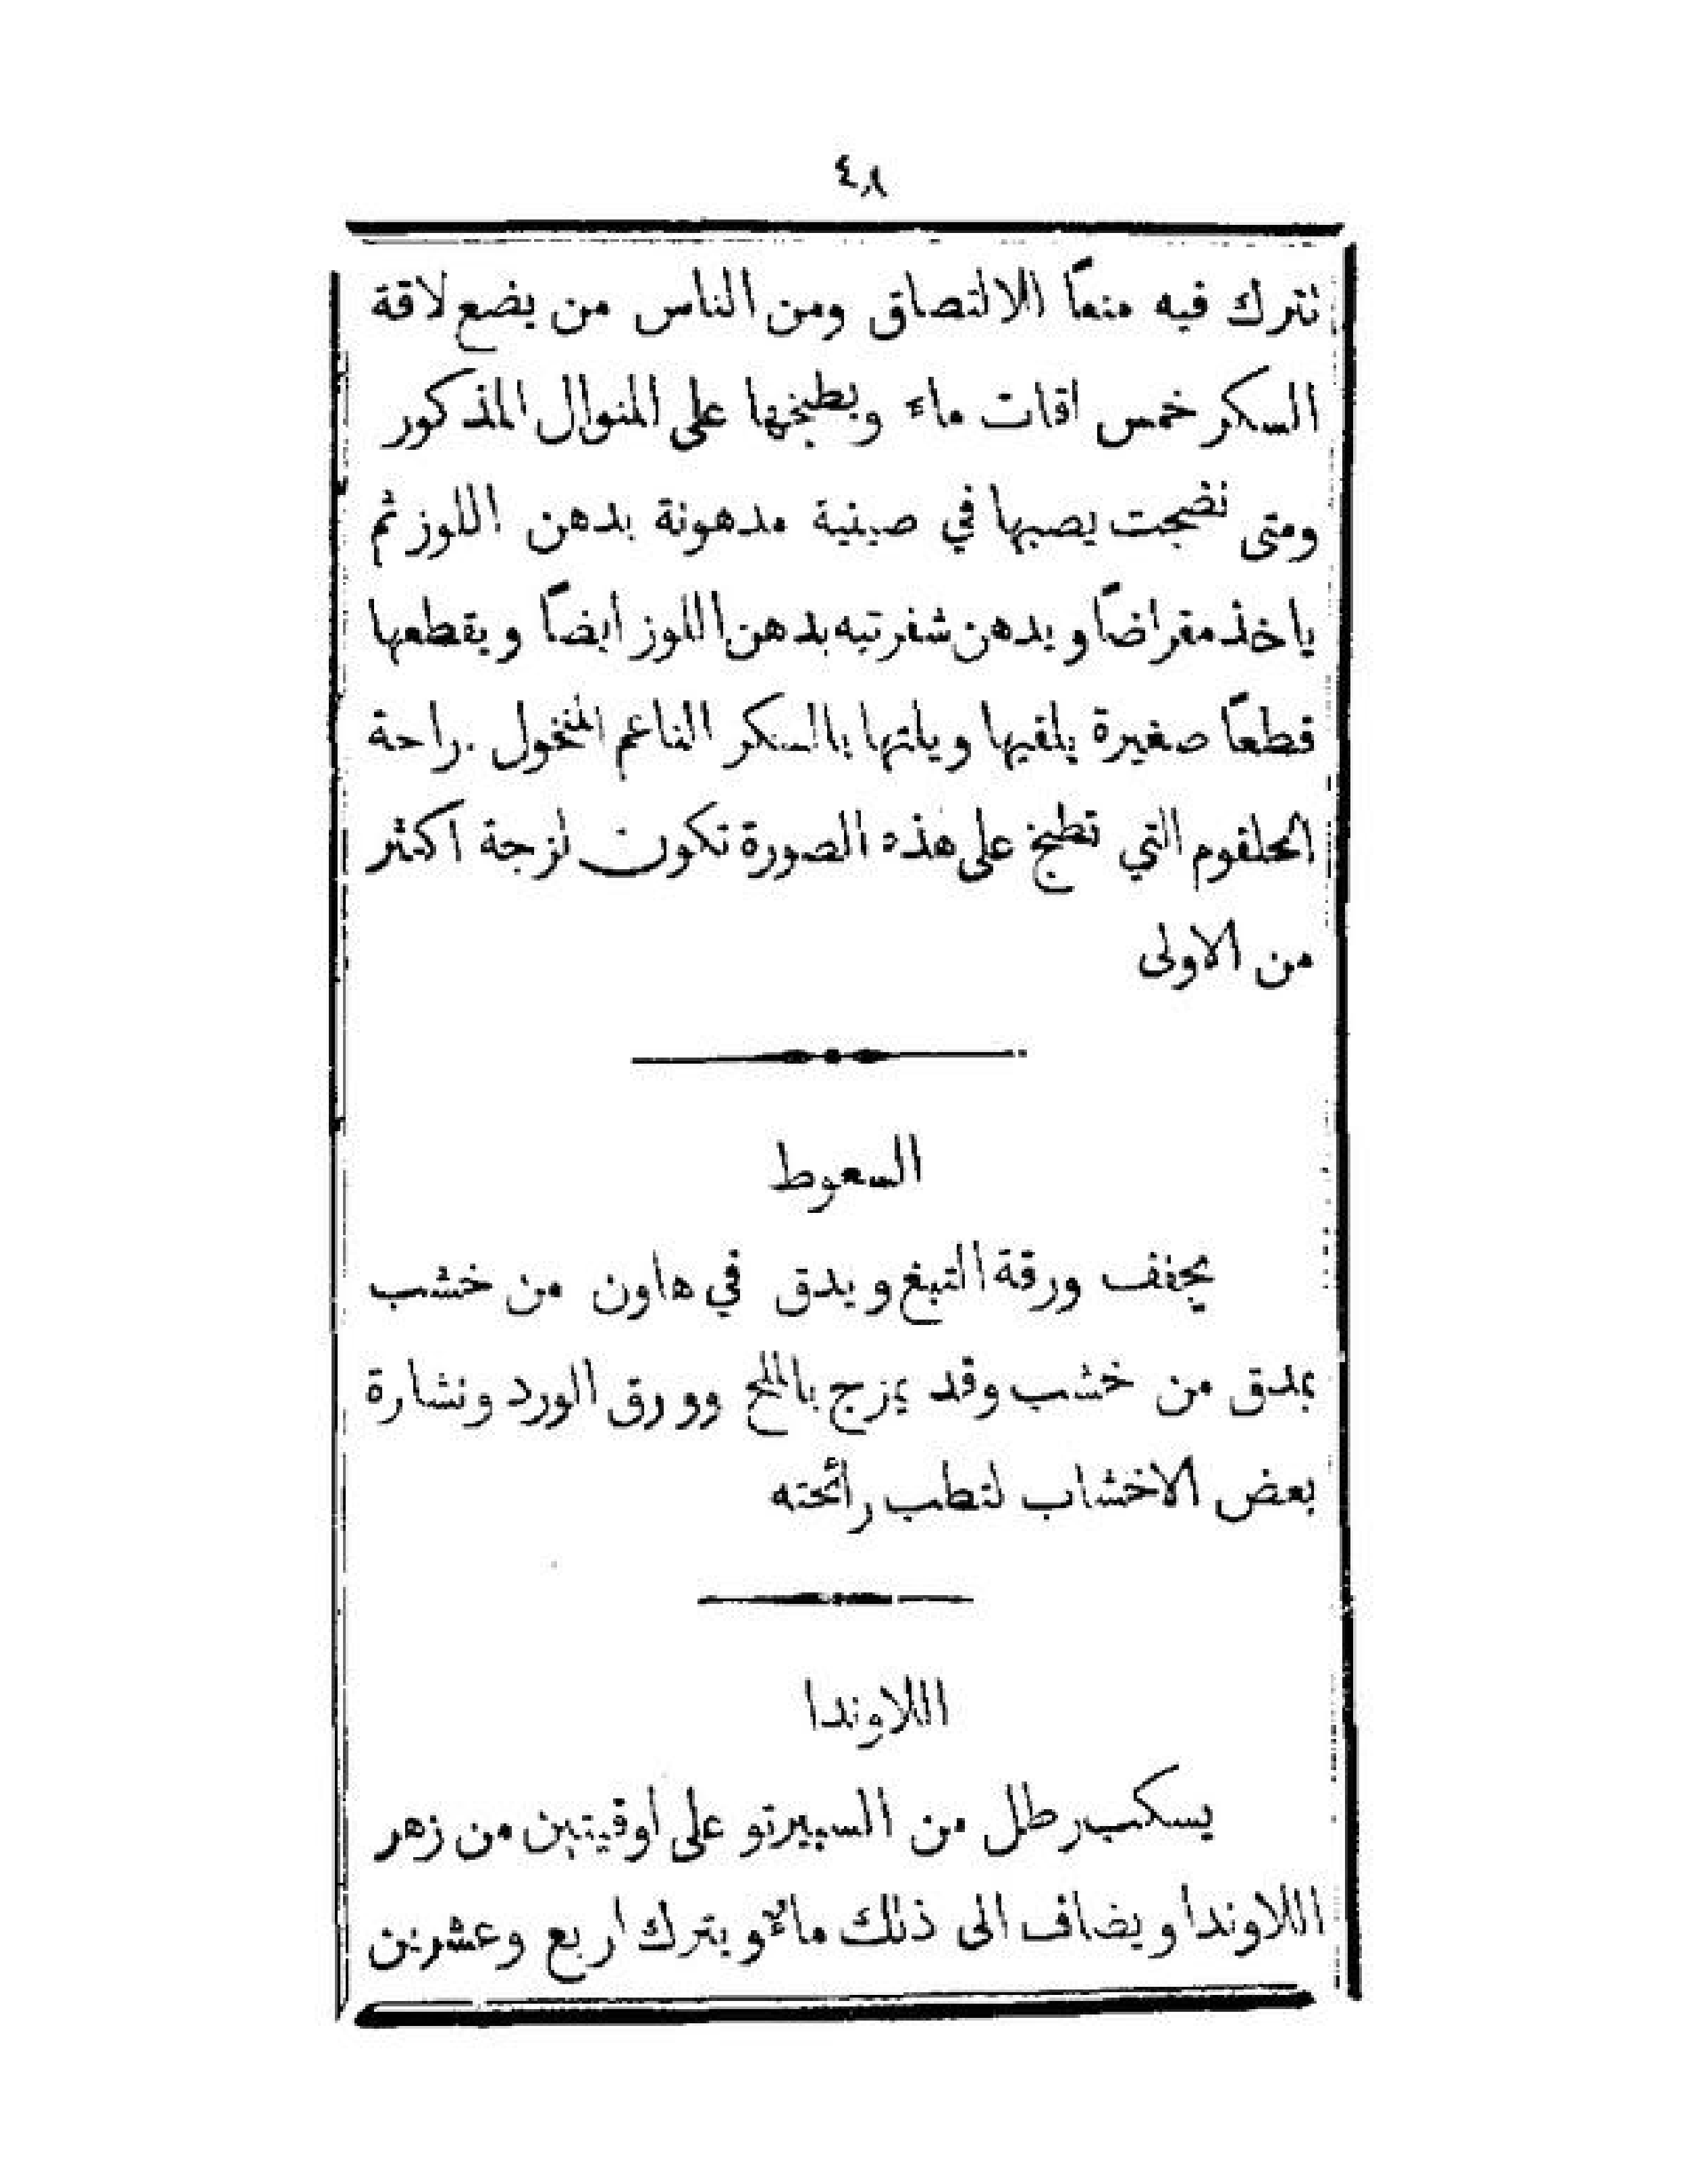 ٤٨
تترك فيه منعاً للالتصاق ومن الناس من يضع لاقة
السكر خمس اقات ماء ويطبخها على المنوال المذكور
ومتى نضجت يصبها في صينية مدهونة بدهن اللوز ثم
ياخذ مقراضاً ويدهن شفرتيه بدهن اللوز ايضاً ويقطعها
قطعاً صغيرة يلقيها ويلتها بالسكر الناعم المنخول . راحة
الحلقوم التي تطبخ على هذه الصورة تكون لزجة اكثر
من الاولى
السعوط
يجفف ورقة التبغ ويدق في هاون من خشب
بمدق من خشب وقد يمزج بالملح وورق الورد ونشارة
بعض الاخشاب لتطب رائحته
اللاوندا
يسكب رطل من السبيرتو على اوقيتين من زهر
اللاوندا ويضاف الى ذلك ماءٌ ويترك اربع وعشرين